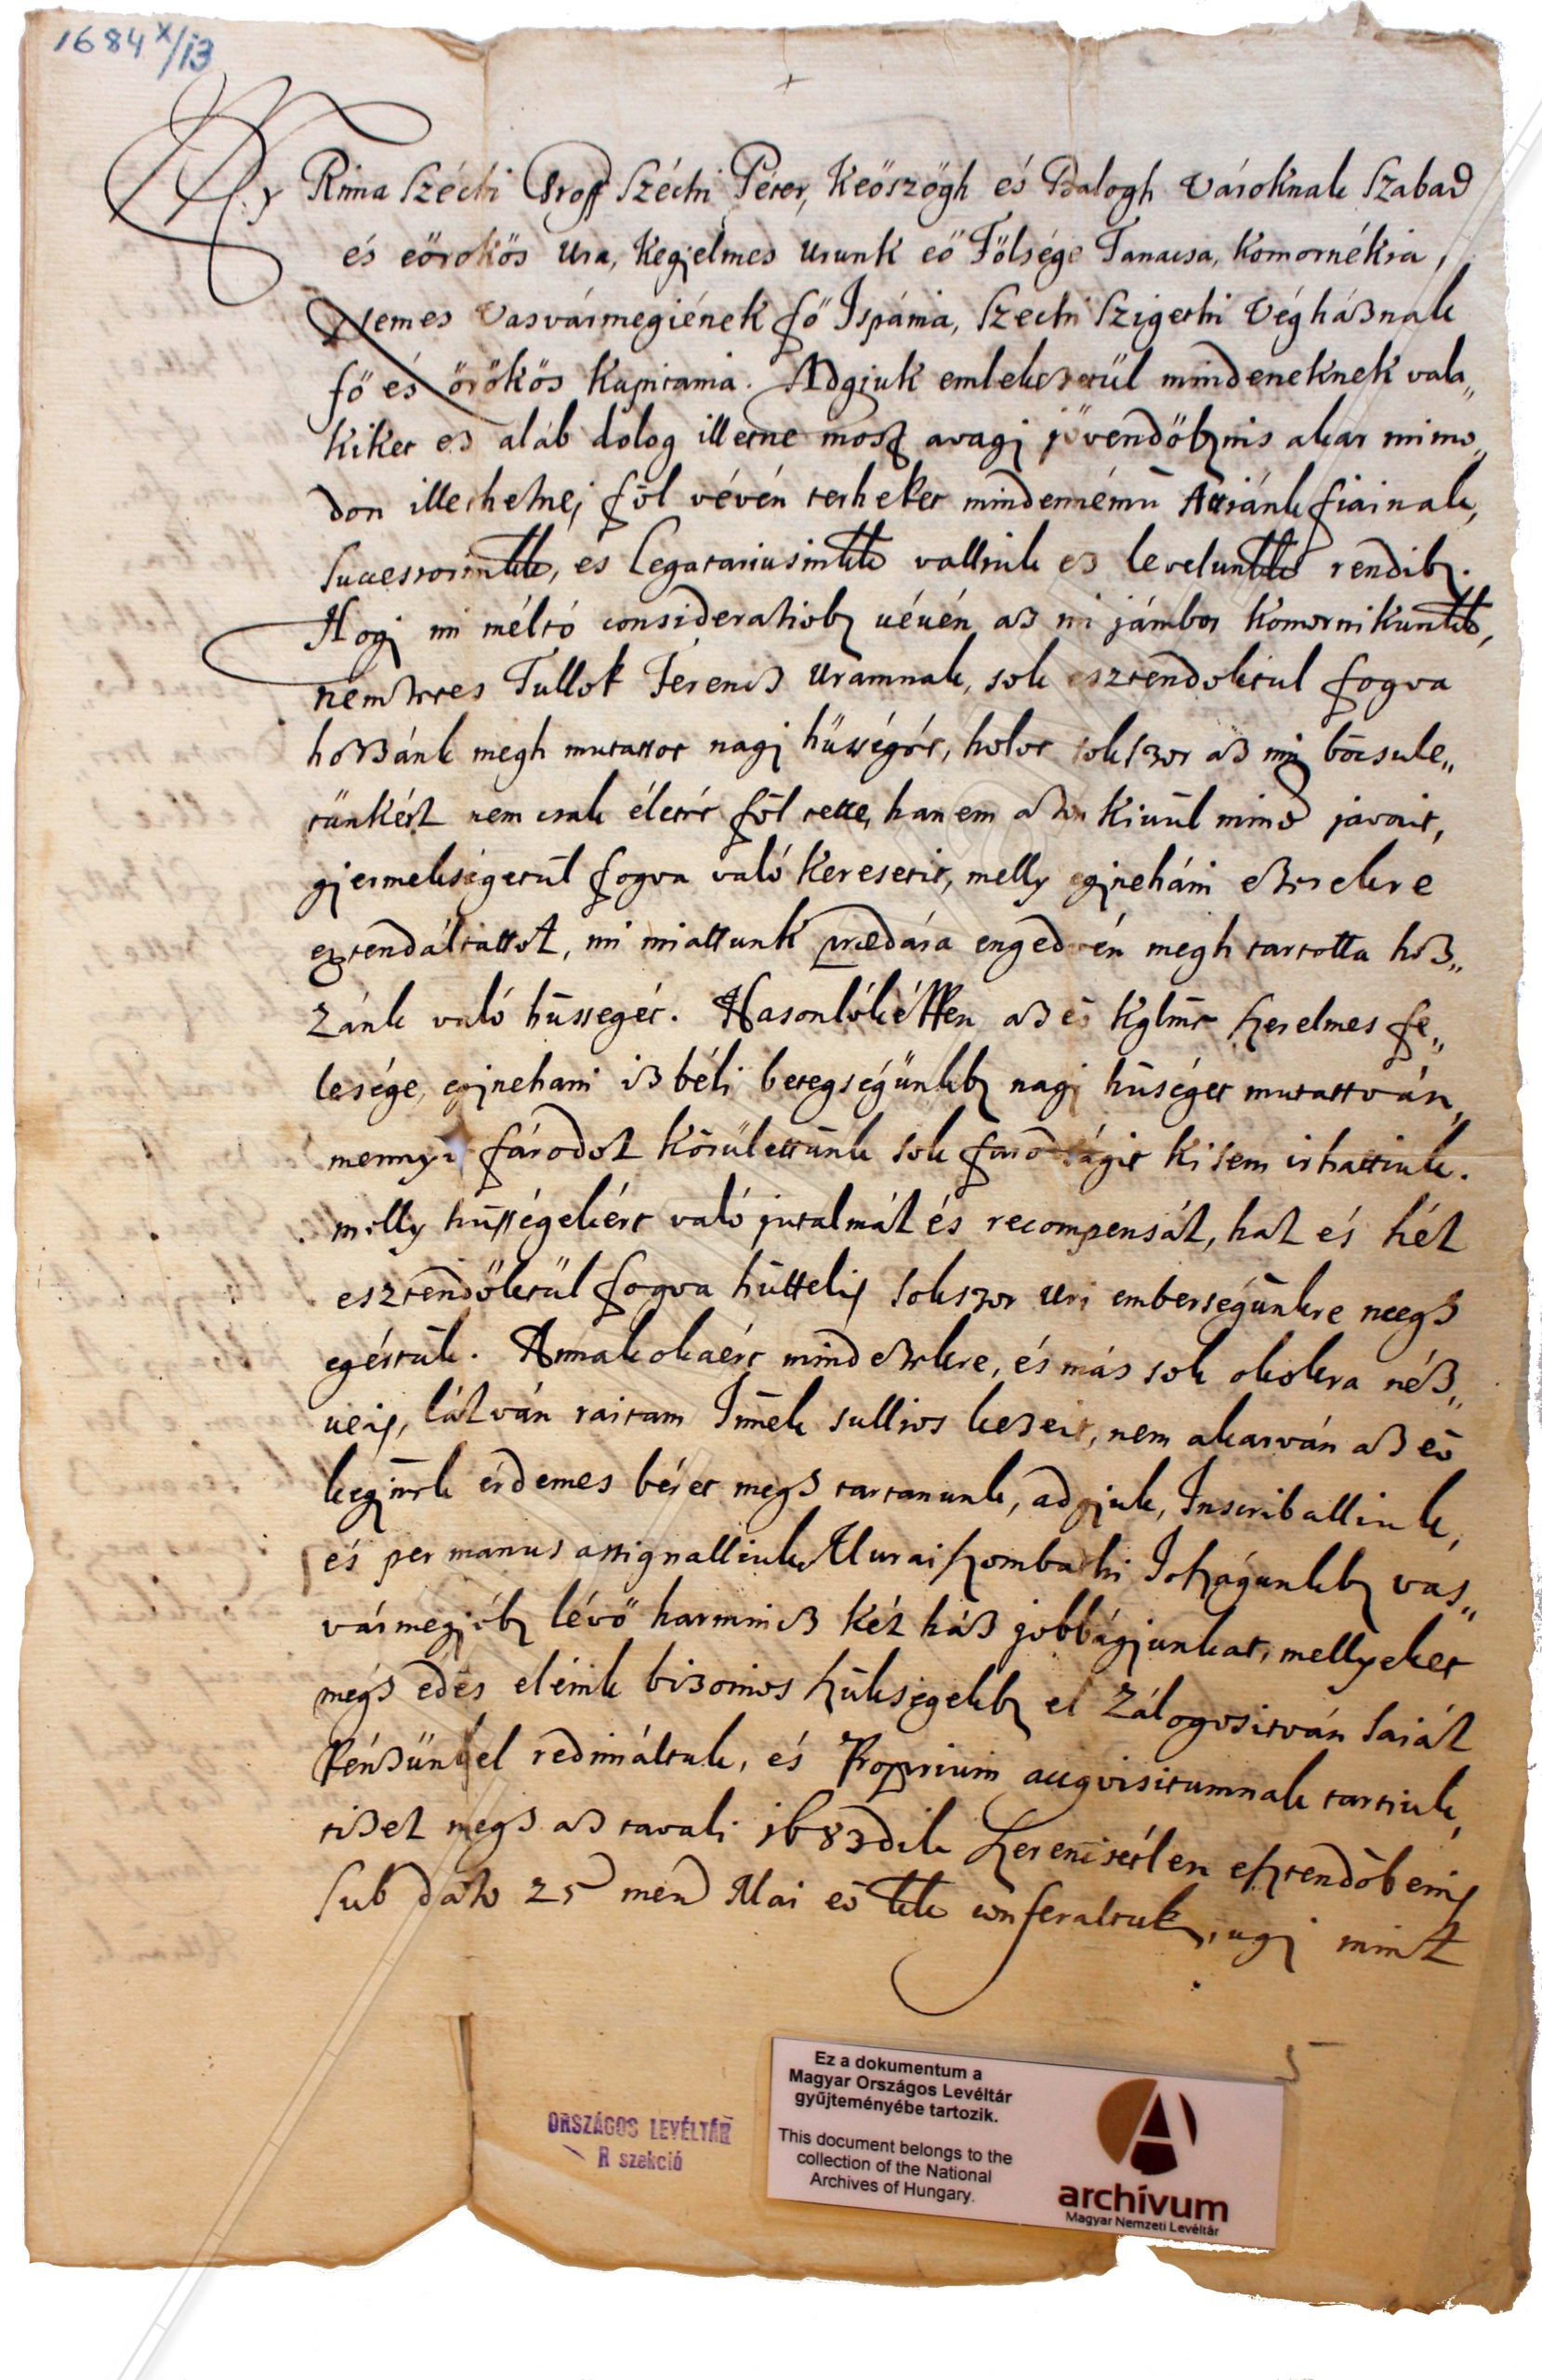 1684 X/13
My Rima Széchi Groff Széchi Péter, Keöszögh és Balogh Városknak Szabad
és eörökös Ura, Kegjelmes Urunk eő Fölsége Tanacsa, Komornékia,
Nemes Vasvármegiének fő Ispánia, Szechi Szigethi Végháßnak
fő és örökös Kapitania. Adgiuk emlekezetül mindeneknek vala„
kiket ez aláb dolog illetne most avagj jövendöbenis akar mimo„
don illethetnej föl vévén terheket mindennémü Attiánkfiainak,
Successorinknak, es Legatariusinknak valliuk ez levelunknek rendiben.
Hogj mi méltó consideratioben vévén aß mi jámbor Komornikunknak,
nemzetes Tullok Ferencz Uramnak, sok esztendoktul fogva
hoßßánk megh mutattot nagj hüségét, holot sokszor aß mi böcsule„
tünkért nem csak életét föl tette, hanem azon kivül mind javait,
gjermekségetül fogva való keresetit, melly egjnehánj ezerekre
extendáltattot, mi miattunk prædára engedvén megh tartotta hoß„
zánk való hüsseget. Hasonlóképpen aß eö kglmt szerelmes fe„
lesége, egjnehani ißbéli betegségünkben nagj hüséget mutattván,
mennyit fárodot körülettünk sok farodságit ki sem irhattiuk.
melly hüsségekért való jutalmát és recompensát, hat és hét
esztendöktül fogva hüttelis sokszor uri emberségünkre meegß
egértük. Annakokaért mind ezekre, és más sok okokra néß„
veis, látván raitam Istennek sullios kezeit, nem akarván aß eö
kegjmek érdemes bérét megß tartanunk, adgjuk, Inscriballiuk,
és per manus assignalliuk Murai szombathi Joszágunkben vas„
vármegjében lévö harmincz két ház jobbágjunkat, mellyeket
megß edes eleink bizonios szükségekben el zálogositván saiát
Pénzünkel redimáltuk, és Proprium acqvisitumnak tartiuk,
tißet megß aß tavali 1683dik szerencsétlen esztendöbenis
Sub dato 25 men Mai eö nekik conferaltuk, ugj mint
5
ORSZÁGOS LEVÉLTÁR
R szekció
Ez a dokumentum a
Magyar Országos Levéltár
gyűjteményébe tartozik.
This document belongs to the
collection of the National
Archives of Hungary.
archívum
Magyar Nemzeti Levéltár